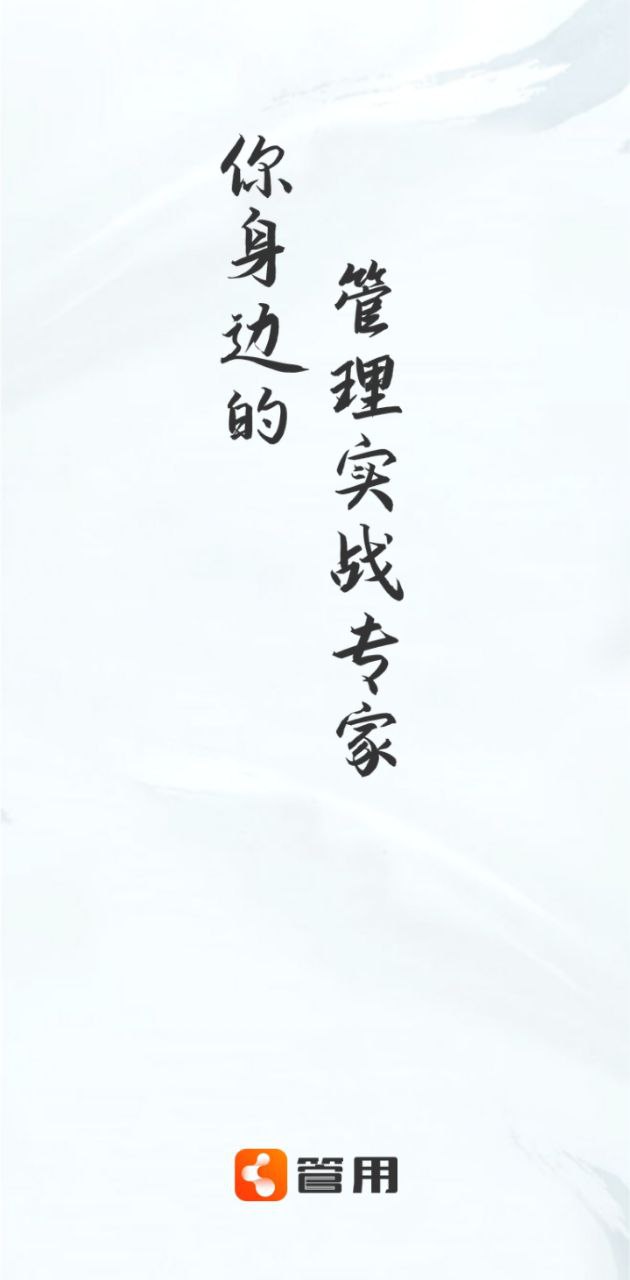 你身边的
管理实战专家
管用